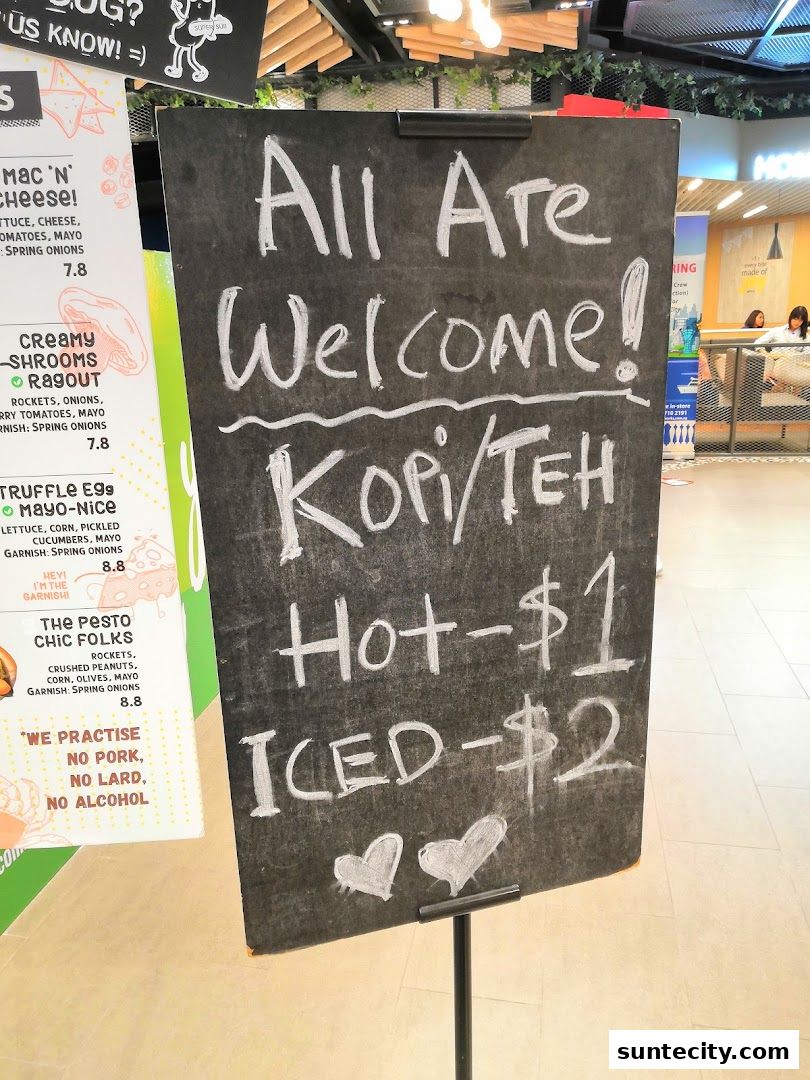 OG?
US KNOW! =)
SUPER SUB
S
MAC 'N'
CHEESE!
TTUCE, CHEESE,
OMATOES, MAYO
: SPRING ONIONS
7.8
CREAMY
-SHROOMS
RAGOUT
ROCKETS, ONIONS,
RRY TOMATOES, MAYO
RNISH: SPRING ONIONS
7.8
TRUFFLE EGG
MAYO-NICE
LETTUCE, CORN, PICKLED
CUCUMBERS, MAYO
GARNISH: SPRING ONIONS
8.8
HEY!
I'M THE
GARNISH!
THE PESTO
CHIC FOLKS
ROCKETS,
CRUSHED PEANUTS,
CORN, OLIVES, MAYO
GARNISH: SPRING ONIONS
8.8
*WE PRACTISE
NO PORK,
NO LARD,
NO ALCOHOL
All Are
Welcome!
KOPi/TEH
Hot-$1
ICED-$2
RING
Crew
made of
suntecity.com